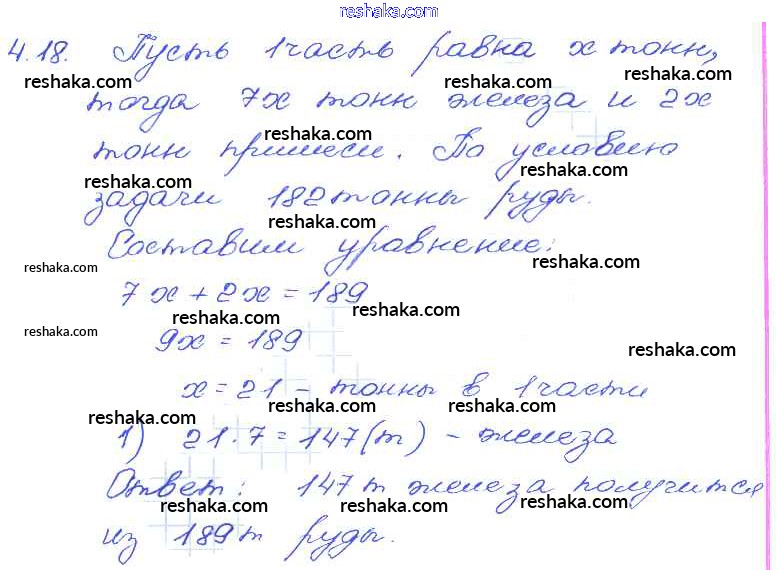 reshaka.com
4.18. Пусть 1 часть равна x тонн,
reshaka.com reshaka.com reshaka.com
тогда 7x тонн железа и 2x
reshaka.com
тонн примеси. По условию
reshaka.com reshaka.com
задачи 182 тонны руды.
reshaka.com
Составим уравнение:
reshaka.com reshaka.com
7x + 2x = 189
reshaka.com reshaka.com
reshaka.com
9x = 189
reshaka.com
x = 21 - тонны в 1 части
reshaka.com reshaka.com reshaka.com
1) 21 · 7 = 147 (т) - железа
Ответ: 147 т железа получится
reshaka.com reshaka.com reshaka.com
из 189 т руды.